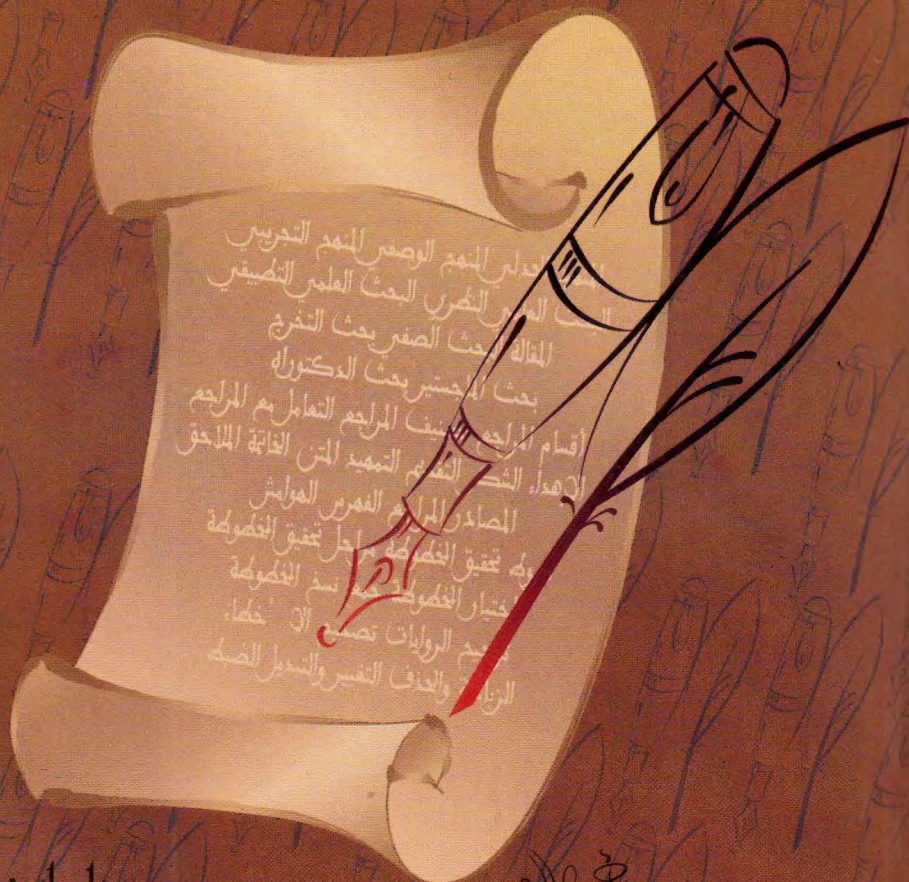 المنهج الوصفي المنهج التجريبي
النظري البحث العلمي التطبيقي
المقالة البحث الصفي بحث التخرج
بحث الماجستير بحث الدكتوراه
أقسام المراجع تصنيف المراجع التعامل مع المراجع
الإهداء الشكر التقديم التمهيد المتن الخاتمة الملاحق
المصادر المراجع الفهرس الهوامش
تحقيق المخطوطة مراحل تحقيق المخطوطة
اختيار المخطوطة نسخ المخطوطة
الروايات الأخطاء
الزيادة والحذف التفسير والتبديل الضبط